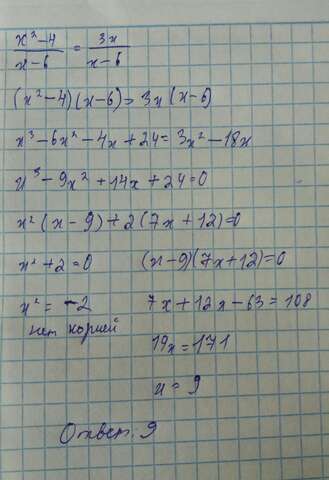 x²-4/x-6 = 3x/x-6
(x²-4)(x-6)=3x(x-6)
x³-6x²-4x+24=3x²-18x
x³-9x²+14x+24=0
x²(x-9)+2(7x+12)=0
x²+2=0 (x-9)(7x+12)=0
x²=-2 7x+12x-63=108
нет корней 19x=171
x=9
Ответ: 9